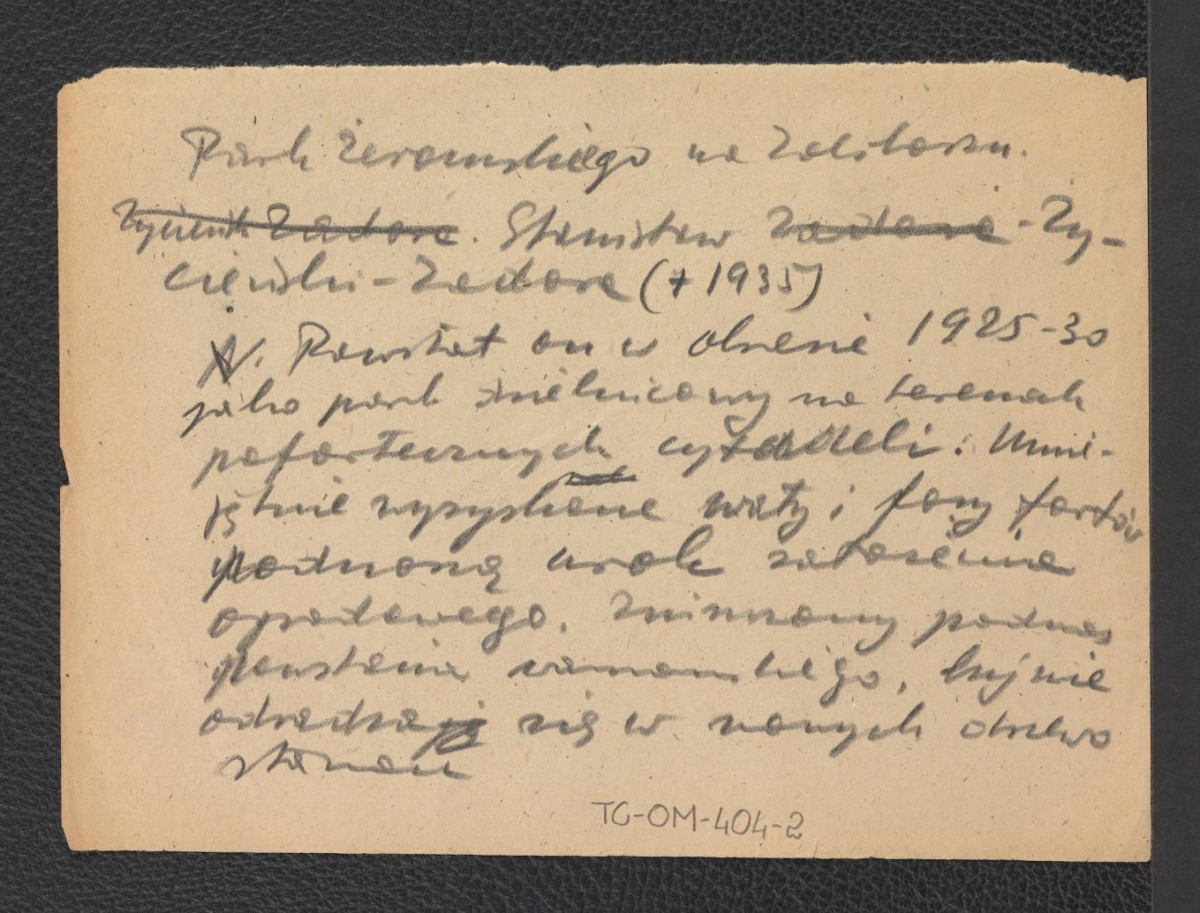 Park Żeromskiego na Żoliborzu.
Życieński Zadora. Stanisław Zadora - Ży-
cieński - Zadora († 1935)
N. Powstał on w okresie 1925-30
jako park dzielnicowy na terenach
pofortecznych cytadeli. Umie-
jętnie wyzyskane wały i fosy fortów
podnoszą urok założenia
ogrodowego. Zniszczony podczas
powstania warszawskiego, bujnie
odradza się w nowych drzewo
stanach
TG-OM-404-2